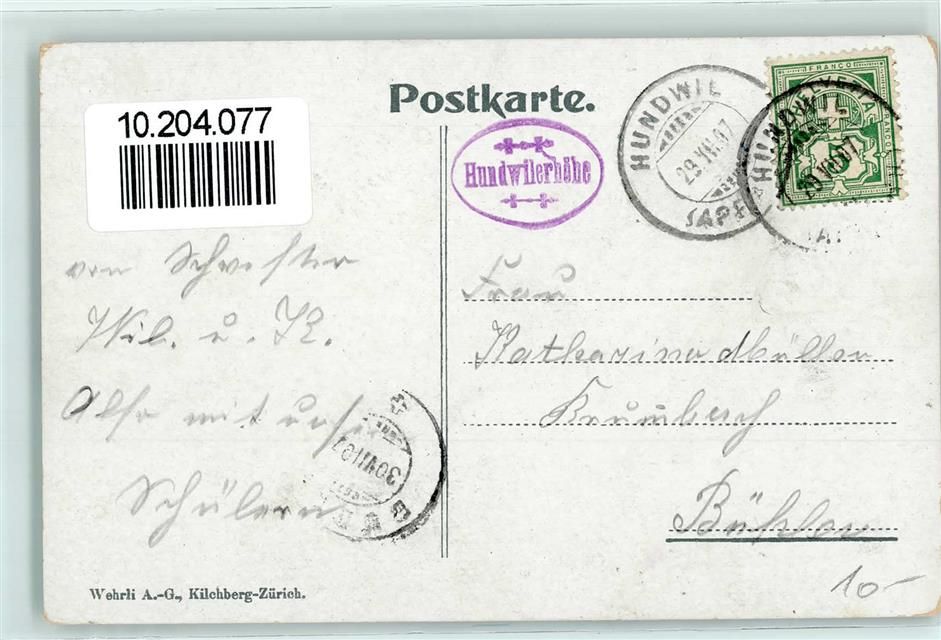 10.204.077
Postkarte.
Hundwilerhöhe
HUNDWIL
29.VII.07
(APP
FRANCO
HELVETIA
FRANCO
von Schwester
Wil. u. K.
Also mit unsern
Schülern
30.VII.07
Frau
Katharina Müller
Krumbach
Bühler
Wehrli A.-G., Kilchberg-Zürich.
10-